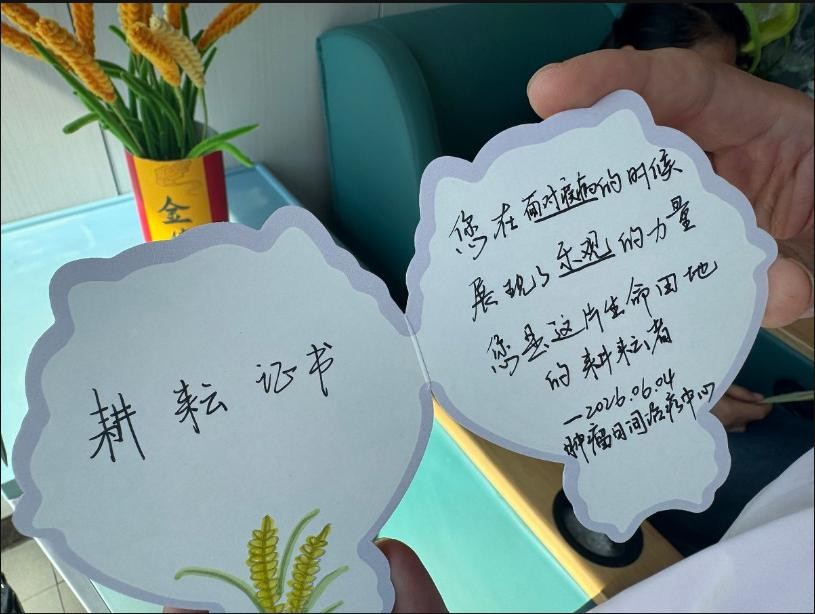 金
耕耘证书
您在面对疾病的时候
展现了乐观的力量
您是这片生命田地
的耕耘者
—2026.06.04
肿瘤日间治疗中心